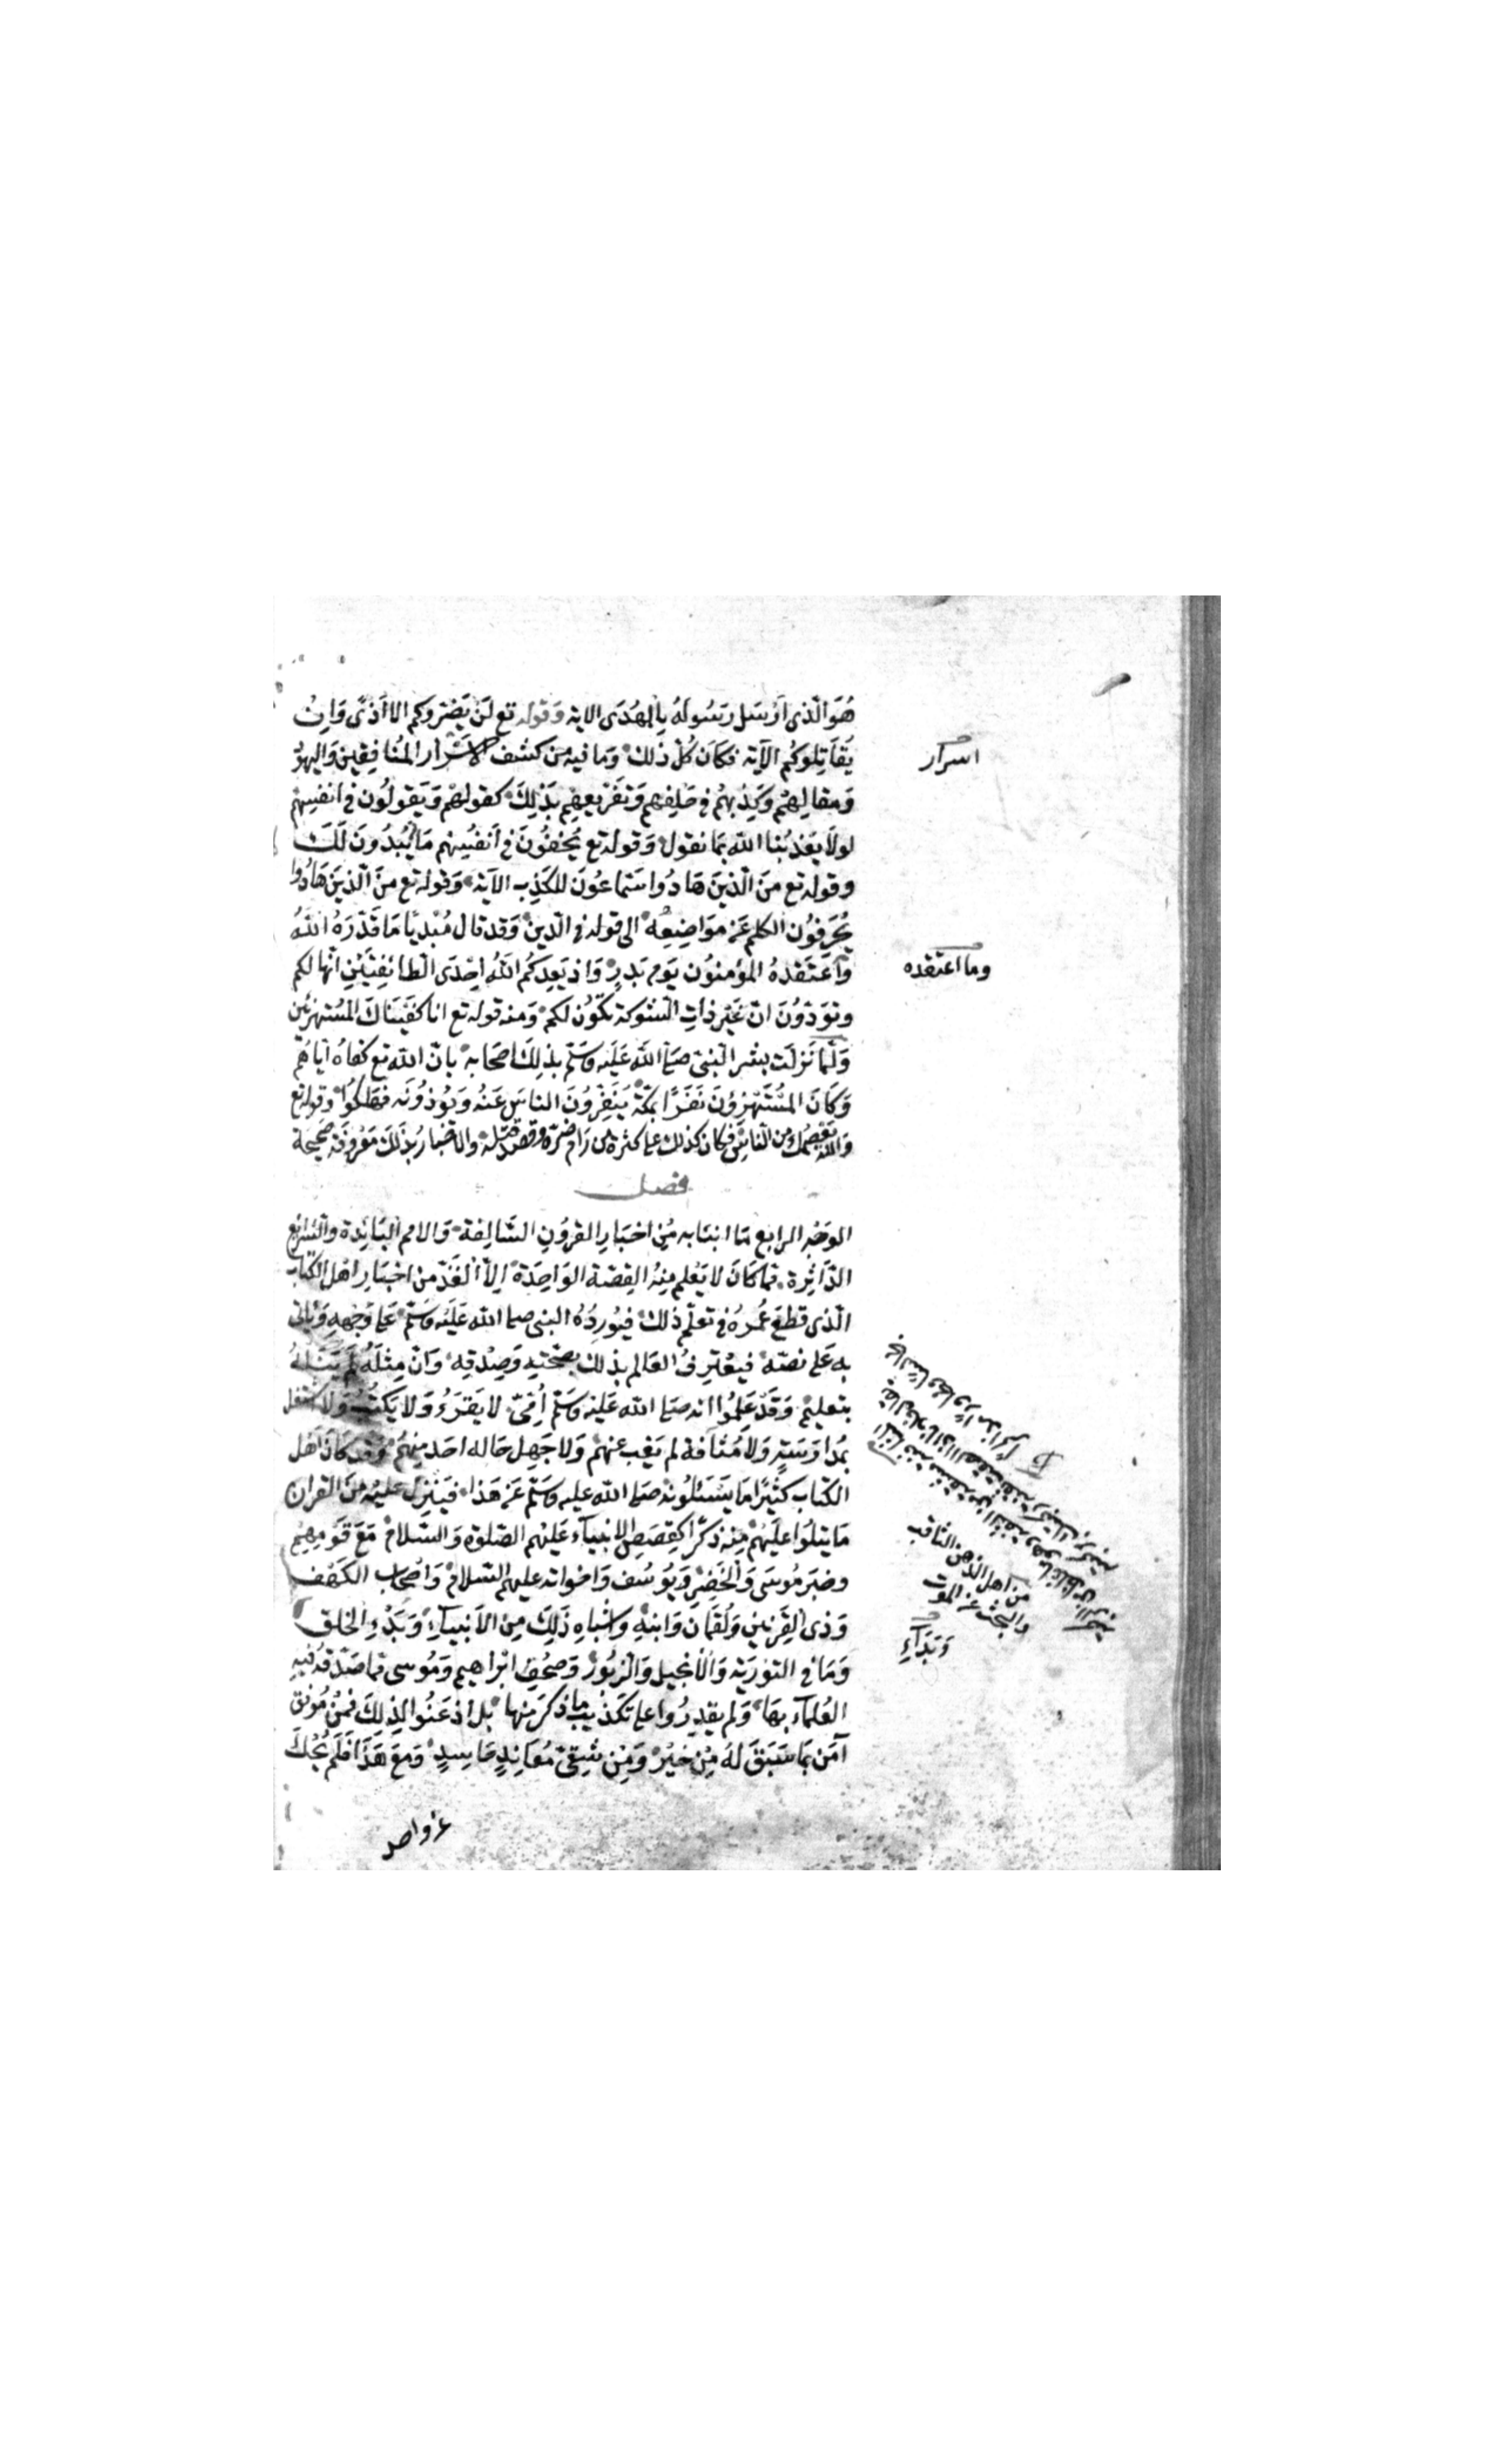 هُوَ الّذى اَرْسَل رَسُولهُ بِالهُدَى الاية وَقوله تع لَنْ يَضرّوكم الا اَذًى وَاِنْ
يُقَاتِلوكُم الآية فكَان كُلّ ذلك وَما فيه من كشْف الاسْرَار المُنَافِقِين وَاليهود
وَمقالِهِمْ وكَذِبهُم فى حَلِفهِم وَتَقْريعِهِم بَذلِكَ كقولهم وَيَقولُون فى انفسِهِمْ
لولَا يعَذبُنا الله بمَا نقول وَقوله تع يُخْفُونَ فى اَنفُسِهم مَا لَا يُبْدُونَ لَكَ
وقوله تع مِنَ الّذينَ هَادُوا سَمّاعُونَ للكَذِب الآية وَقوله تع مِنَ الّذينَ هَادُوا
يُحَرّفوُن الكلم عَنْ موَاضِعِه الى قوله فى الدّين وَقد قال مُبْديًا مَا قَدّرَهُ اللهُ
وَاعْتَقَدهُ المؤمنوُن يَوم بَدرٍ وَاذ يَعِدكُم اللهُ اِحْدَى الطائِفَتَيْنِ انّها لكم
وتوَدّوُنَ انّ غَيْر ذاتِ الشوكة تكوُن لكم وَمنه قوله تع انا كفَيْنَاكَ المسْتهزئين
وَلَمّا نَزلَت بشر النّبىّ صَلى اللهَ عَلَيه وَسَلّم بذلِكَ اصْحَابه بانّ الله تع كفَاهُ اياهُم
وَكَانَ المُسْتَهْزؤنَ نَفَرًا بمكّة يُنَفّرُونَ الناسَ عَنْهُ وَيُؤذوُنَه فهَلكُوا وقوله تع
وَاللهُ يَعْصِمُكَ من النّاس فكان كذلك على كثرة من رَام ضرّه وقصد قتله والاخبار بذلكَ مَعْروفَة صَحِيحة
فصل
الوَجْهُ الرابع مَا انبَا به مِن اخبَارِ القرُونِ السَّالِفة وَالامم البَائِدة وَالشّرائع
الدّاثِرة ممّا كانَ لا يَعْلم مِنهُ القِصّة الوَاحِدَة اِلّا الفَذّ من اخبَارِ اهْل الكتاب
الّذى قطعَ عُمرهُ فى تعلّم ذلك فيُورِدُهُ النبى صلى الله عَلَيه وسَلّم على وَجْههِ وَيَاتى
به على نصّه فيعْترِفُ العَالم بذلك بصحّتهِ وَصِدْقِهِ وَانّ مِثلَهُ لم يَنَلهُ
بتعليم وَقَدْ عَلِمُوا انه صَلى الله عَليه وسَلّم اُمّىّ لا يَقرَءُ وَلا يَكتُبُ وَلا اشتغل
بمُدَارَسَةٍ وَلا مُثَافنة لم يَغِب عنهمْ وَلا جَهِل حَاله احَد مِنْهُم وَقد كَانَ اَهْل
الكتاب كثيرًا مَا يَسْئَلُونه صَلى الله عليه وسَلّم عَنْ هَذا فيَنْزِل عليه مِنَ القران
مَا يتلُوا علَيهُمْ مِنه ذكرًا كقِصَصِ الانبيآء عَليْهُم الصّلوة وَالسّلام مَعَ قوْمِهِم
وخبَر مُوسَى وَالخَضِر وَيوُسُف وَاخواته عليهم السّلام وَاصْحَاب الكَهْف
وَذِى القَرنَينِ وَلُقمَانَ وَابنهِ وَاشباهِ ذَلِكَ مِنَ الاَنبيآءِ وَبَدْءِ الخلق
وَمَا فى التوْرَية وَالانجيل وَالزّبُور وَصحُفِ ابْراهيم وَمُوسى ممّا صَدّقهُ فيهِ
العُلمآء بهَا وَلم يقدِرُوا على تكذيب ما ذكرَ منها بل اذْعَنُوا لِذلِكَ فمنْ مُوَفقٍ
آمَن بمَا سَبَقَ لهُ مِنْ خيْرٍ وَمِن شِقىّ مُعَانِدٍ حَاسِدٍ وَمعَ هَذَا فَلَمْ يُحْكَ
عن واحد
اسرار
وما اعتقده
من اهل الذهن الثاقب
وَبَدَاءِ